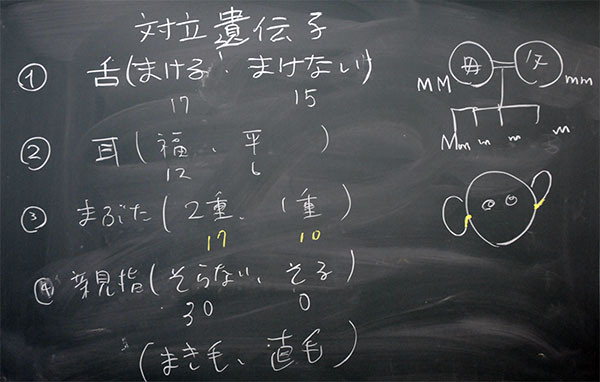 対立遺伝子
① 舌(まける、まけない)
17 15
② 耳(福、平 )
12 6
③ まぶた(2重、1重)
17 10
④ 親指(そらない、そる)
30 0
(まき毛、直毛)
MM 母 父 mm
Mm m m m